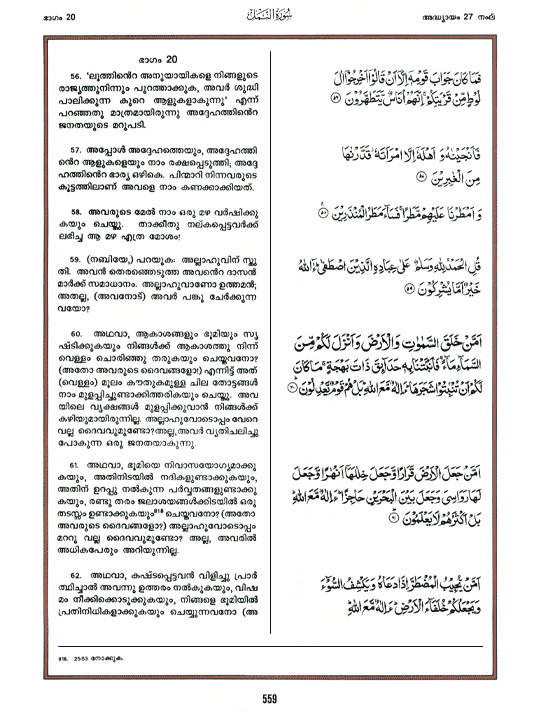 ഭാഗം 20
سُورَةُ النَّمْلِ
അദ്ധ്യായം 27 നംല്
ഭാഗം 20
56. 'ലൂത്തിൻെറ അനുയായികളെ നിങ്ങളുടെ
രാജ്യത്തുനിന്നും പുറത്താക്കുക, അവർ ശുദ്ധി
പാലിക്കുന്ന കൂറെ ആളുകളാകുന്നു' എന്ന്
പറഞ്ഞതു മാത്രമായിരുന്നു അദ്ദേഹത്തിൻെറ
ജനതയുടെ മറുപടി.
57. അപ്പോൾ അദ്ദേഹത്തെയും, അദ്ദേഹത്തി
ൻെറ ആളുകളെയും നാം രക്ഷപ്പെടുത്തി; അദ്ദേ
ഹത്തിൻെറ ഭാര്യ ഒഴികെ. പിന്മാറി നിന്നവരുടെ
കൂട്ടത്തിലാണ് അവളെ നാം കണക്കാക്കിയത്.
58. അവരുടെ മേൽ നാം ഒരു മഴ വർഷിക്കു
കയും ചെയ്തു. താക്കീതു നല്കപ്പെട്ടവർക്ക്
ലഭിച്ച ആ മഴ എത്ര മോശം!
59. (നബിയേ,) പറയുക: അല്ലാഹുവിന് സ്തു
തി. അവൻ തെരഞ്ഞെടുത്ത അവൻെറ ദാസൻ
മാർക്ക് സമാധാനം. അല്ലാഹുവാണോ ഉത്തമൻ;
അതല്ല, (അവനോട്) അവർ പങ്കു ചേർക്കുന്ന
വയോ?
60. അഥവാ, ആകാശങ്ങളും ഭൂമിയും സൃ
ഷ്ടിക്കുകയും നിങ്ങൾക്ക് ആകാശത്തു നിന്ന്
വെള്ളം ചൊരിഞ്ഞു തരുകയും ചെയ്തവനോ?
(അതോ അവരുടെ ദൈവങ്ങളോ!) എന്നിട്ട് അത്
(വെള്ളം) മൂലം കൗതുകമുള്ള ചില തോട്ടങ്ങൾ
നാം മുളപ്പിച്ചുണ്ടാക്കിത്തരികയും ചെയ്തു. അവ
യിലെ വൃക്ഷങ്ങൾ മുളപ്പിക്കുവാൻ നിങ്ങൾക്കു
കഴിയുമായിരുന്നില്ല. അല്ലാഹുവോടൊപ്പം വേറെ
വല്ല ദൈവവുമുണ്ടോ?അല്ല,അവർ വ്യതിചലിച്ചു
പോകുന്ന ഒരു ജനതയാകുന്നു.
61. അഥവാ, ഭൂമിയെ നിവാസയോഗ്യമാക്കു
കയും, അതിനിടയിൽ നദികളുണ്ടാക്കുകയും,
അതിന് ഉറപ്പു നൽകുന്ന പർവ്വതങ്ങളുണ്ടാക്കു
കയും, രണ്ടു തരം ജലാശയങ്ങൾക്കിടയിൽ ഒരു
തടസ്സം ഉണ്ടാക്കുകയും⁸¹⁸ ചെയ്തവനോ? (അതോ
അവരുടെ ദൈവങ്ങളോ?) അല്ലാഹുവോടൊപ്പം
മററു വല്ല ദൈവവുമുണ്ടോ? അല്ല, അവരിൽ
അധികപേരും അറിയുന്നില്ല.
62. അഥവാ, കഷ്ടപ്പെട്ടവൻ വിളിച്ചു പ്രാർ
ത്ഥിച്ചാൽ അവന്നു ഉത്തരം നൽകുകയും, വിഷ
മം നീക്കിക്കൊടുക്കുകയും, നിങ്ങളെ ഭൂമിയിൽ
പ്രതിനിധികളാക്കുകയും ചെയ്യുന്നവനോ (അ
فَمَا كَانَ جَوَابَ قَوْمِهِ إِلَّا أَنْ قَالُوا أَخْرِجُوا آلَ
لُوطٍ مِنْ قَرْيَتِكُمْ إِنَّهُمْ أُنَاسٌ يَتَطَهَّرُونَ ٥٦
فَأَنْجَيْنَهُ وَأَهْلَهُ إِلَّا امْرَأَتَهُ قَدَّرْنَهَا
مِنَ الْغَبِرِينَ ٥٧
وَأَمْطَرْنَا عَلَيْهِمْ مَطَرًا فَسَاءَ مَطَرُ الْمُنْذَرِينَ ٥٨
قُلِ الْحَمْدُ لِلَّهِ وَسَلَمٌ عَلَى عِبَادِهِ الَّذِينَ اصْطَفَى ءَاللَّهُ
خَيْرٌ أَمَّا يُشْرِكُونَ ٥٩
أَمَّنْ خَلَقَ السَّمَوَتِ وَالْأَرْضَ وَأَنْزَلَ لَكُمْ مِنَ
السَّمَاءِ مَاءً فَأَنْبَتْنَا بِهِ حَدَائِقَ ذَاتَ بَهْجَةٍ مَا كَانَ
لَكُمْ أَنْ تُنْبِتُوا شَجَرَهَا أَءِلَهٌ مَعَ اللَّهِ بَلْ هُمْ قَوْمٌ يَعْدِلُونَ ٦٠
أَمَّنْ جَعَلَ الْأَرْضَ قَرَارًا وَجَعَلَ خِلَلَهَا أَنْهَرًا وَجَعَلَ
لَهَا رَوَاسِيَ وَجَعَلَ بَيْنَ الْبَحْرَيْنِ حَاجِزًا أَءِلَهٌ مَعَ اللَّهِ
بَلْ أَكْثَرُهُمْ لَا يَعْلَمُونَ ٦١
أَمَّنْ يُجِيبُ الْمُضْطَرَّ إِذَا دَعَاهُ وَيَكْشِفُ السُّوءَ
وَيَجْعَلُكُمْ خُلَفَاءَ الْأَرْضِ أَءِلَهٌ مَعَ اللَّهِ
818. 25:53 നോക്കുക.
559